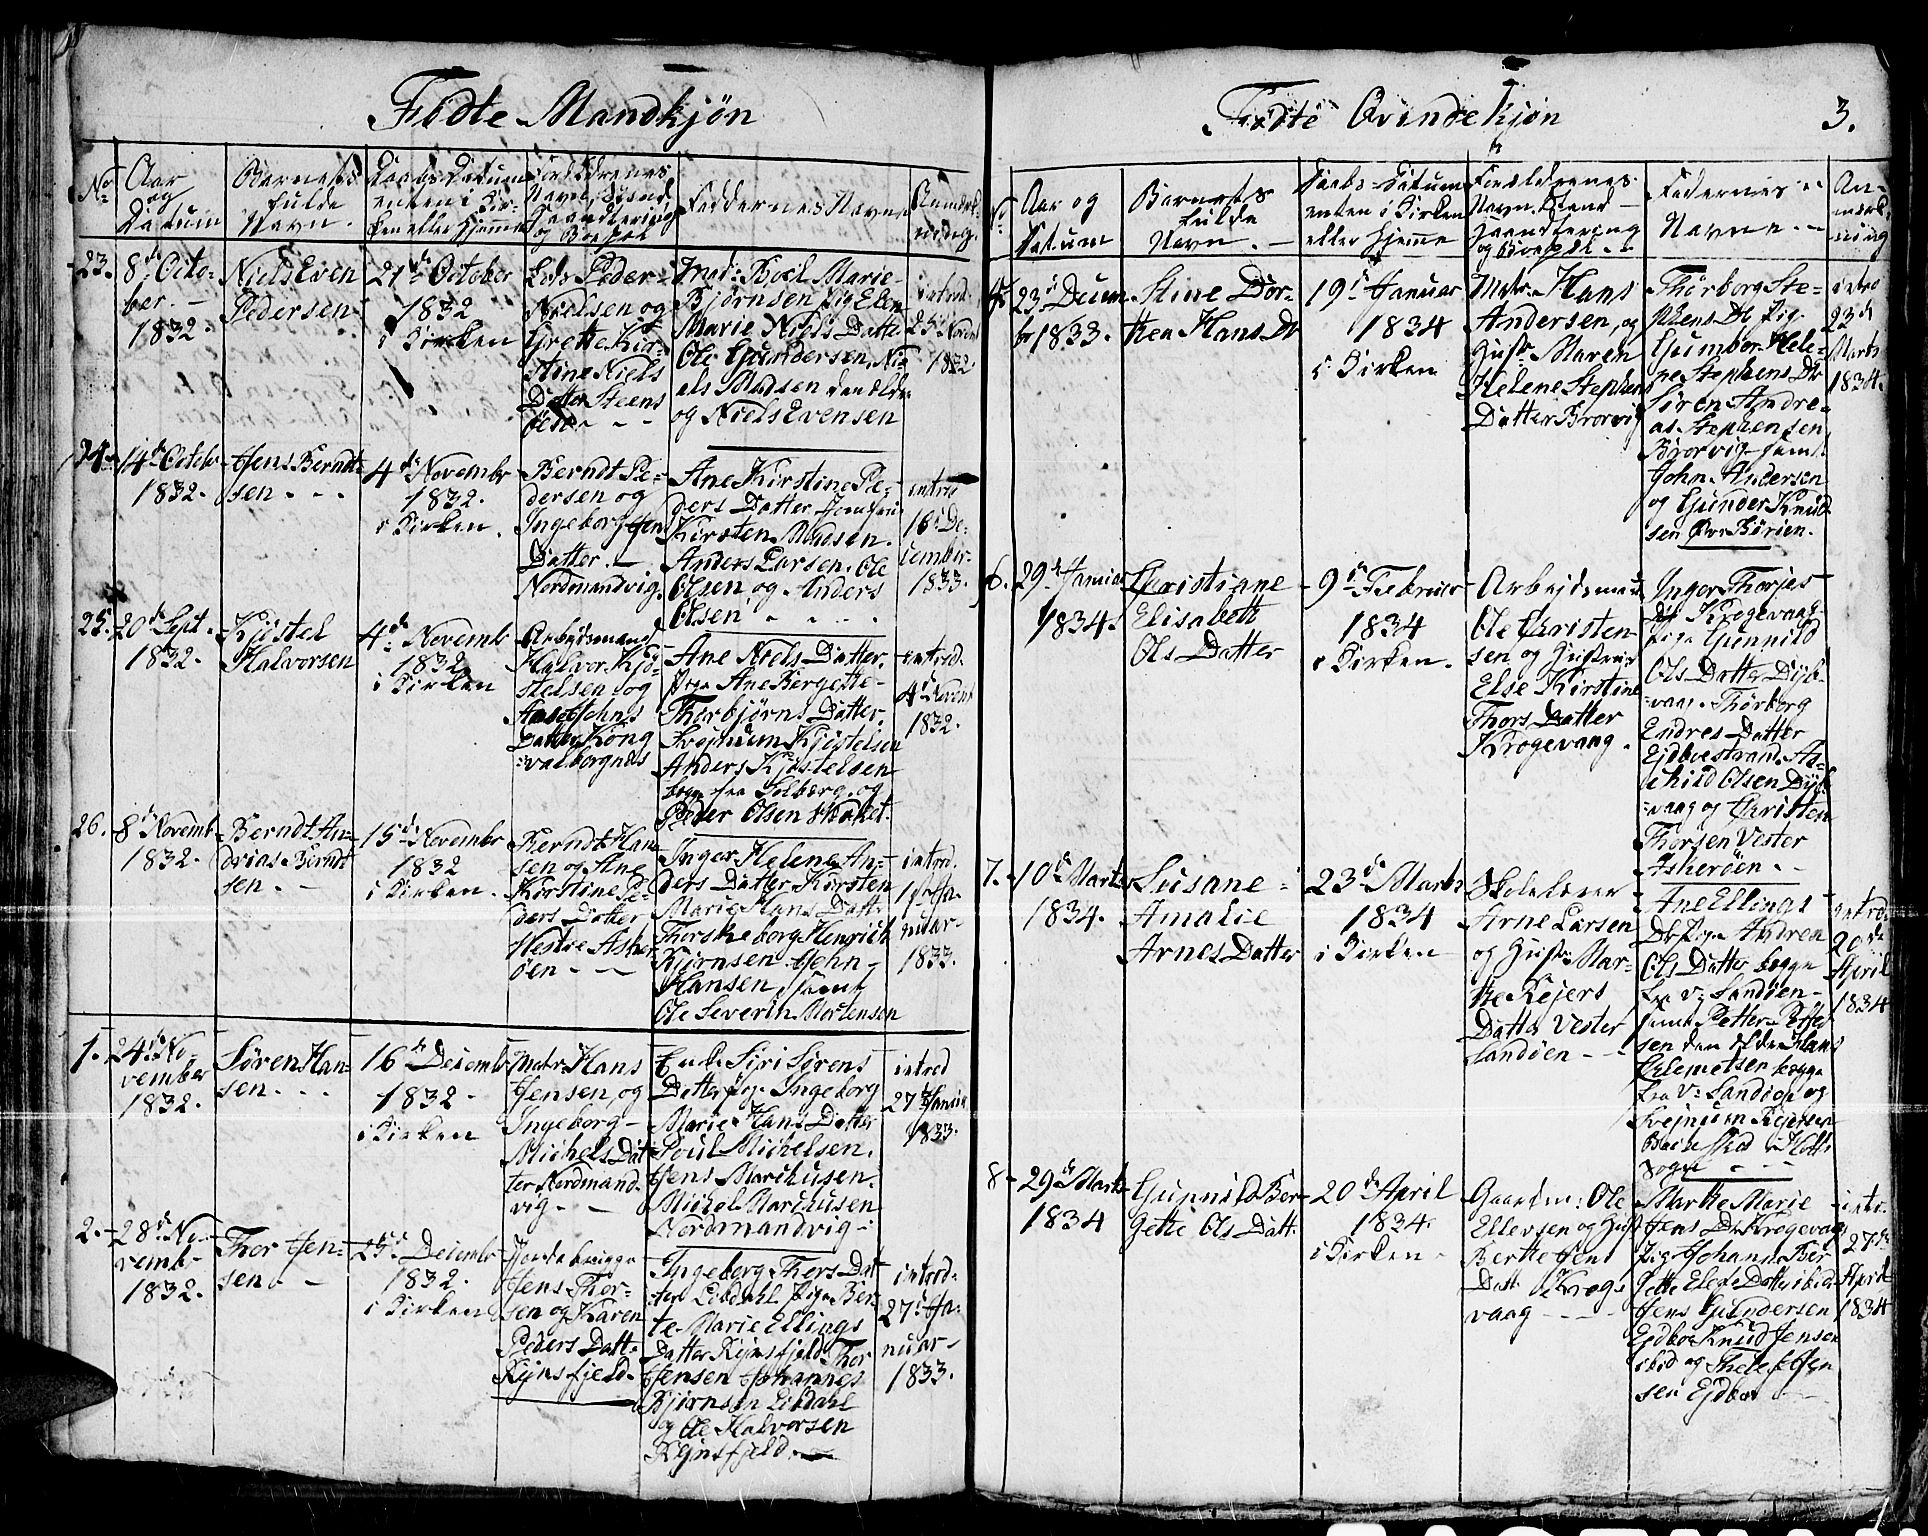 Fødte Mandkjøn
No
Aar
og
Datum
Barnets
fulde
Navn.
Daabs Datum
enten i Kir-
ken eller hjemme
Forældrenes
Navn, Stand,
Haandtering
og Bopæl
Faddernes Navne
Anmærk-
ning.
23.
8de Octo-
ber. -
1832.
Niels Even
Pedersen
21de October
1832
i Kirken
Peder
Nielsen og
Grette Kir-
stine Niels
Datter Steens
öen. - -
Mad: Boel Marie
Bjørnsen pig. Elen
Marie Niels Datter
Ole Gundersen, Ni-
els Madsen den Eldre
og Niels Evensen
introd.
25de Novbr
1832
24.
14de Octobr
1832.
Jens Berndt-
sen. - -
4de Novembr
1832.
i Kirken.
Berndt Pe-
dersen og
Ingeborg Jens
Datter. -
Nordmandvig
Ane Kirstine Pe-
ders Datter
Kirsten Madsen.
Anders Larsen. Ole
Olsen og Anders
Olsen
introd
16de De-
cember.
1833.
25.
20de Sept.
1832.
Kjøstel
Halvorsen
4de Novemb
1832
i Kirken
Arbejdsmand
Halvor Kjø-
stelsen og
Aase Johns
Datter Kong
=valborgnæs
Ane Niels Datter.
pige Ane Bergette
Thorbjørns Datter.
Svejnum Kjøstelsen
Anders Kjøstelsen
begge fra Solberg. og
Peder Olsen
introd.
4de Novemb
1832.
26.
8de Novemb
1832.
Berndt An-
drias Berndt
sen. -
15de Novembr
1832
i Kirken.
Berndt Han
sen og Ane
Kirstine Pe-
ders Datter
Westre Asker
öen - -
Inger Helene An-
ders Datter Kirsten
Marie Hans Datt.
Thorskeborg Henrich
Bjørnsen John
Hansen, samt
Ole Severin Mortensen
introd.
1de Ja-
nuar
1833.
1.
24de No-
vember
1832.
Søren Han-
sen. - - -
16de Decembr
1832.
i Kirken
Matr. Hans
Jensen, og
Ingeborg
Michels Dat
ter Nordmand
vig - -
Enke Siri Sørens
Datter pig. Ingeborg
Marie Hans Datter
Poul Michelsen.
Jens Marchusen.
Michel Marchusen
Nordmandvig
introd
27de Januar
1833.
2.
28de No-
vemb
1832.
Thor Jen-
sen. -
25de Decembr
1832.
i Kirken
Jens Thor-
sen og Karen
Peders Datt.
Kynsfjeld.
Ingeborg Thors Dat
ter Libdahl Pige Ben
te Marie Ellings
Datter Kynsfjeld. Thor
Jensen Johannes
Bjørnsen Libdahl
og Ole Halvorsen
Kynsfjeld.
introd.
27de Ja-
nuar
1833.
Fødte Qvindekjøn
3.
No.
Aar og
Datum
Barnets
fulde
Navn. -
Daabs-Datum
enten i Kirken
eller hjemme
Forældrenes
Navn, Stand
Haandtering
og Bopæl
Faddernes
Navne. -
An-
mærk-
ning
23de Decem
br 1833.
Stine Dor-
thea Hans Dr
19de Januar
1834
i Kirken
Matr. Hans
Andersen, og
Hustr. Maren
Helene Stephens
Datter Brorvig
Thorborg Ste-
phens Dr pig.
Gumbor Hele-
ne Stephens Dr
Søren Andre-
as Stephensen
Brorvig samt
John Andersen
og Gunder Knud
sen
introd
23de
Marts
1834.
6.
29de Januar
1834.
Christiane
Elisabett
Ols Datter
9de Februar
1834
i Kirken.
Arbejdsmand
Ole Christen
sen og Hustrue
Else Kirstine
Thors Datter
Krogevaag.
Inger Thorjes
Dr Krogevaag
pige Gunnild
Ols Datter Dyb-
vaag Thorborg
Endres Datter
Ejdboestrand. As-
child Olsen Dyb
=vaag og Christen
Thorsen Vester
Askerøen. -
7.
10de Marts
1834.
Susane
Amalie
Arnes Datter
23de Marts
1834
i Kirken
Skolelærer
Arne Larsen
og Hustr. Mar-
the Rejers
Datter Vester
Sandøen - -
Ane Ellings
Dr Pige Andrea
Ols Datter begge
fra V: Sandøen
samt Petter Petter
sen den eldre Hans
Clemetsen begge
fra V: Sandøe og
Svejnum Rejersen
i Holts
sogn - - -
introd.
20de
April
1834
8
29de Marts
1834
Gunnild Ber
gette Ols Datt.
20de April
1834.
i Kirken.
Gaardm: Ole
Ellevsen og Hust
Berthe Jens
Datt Kroge
vaag - - -
Marthe Marie
Jens Dr Krogevaag
Pig. Johane Ber
gette Elefs Datter ibid
Jens Gundersen
Ejdboe Knud Jensen
ibid og Thelef Jen
sen Ejdboe
intr.
27de
April
1834